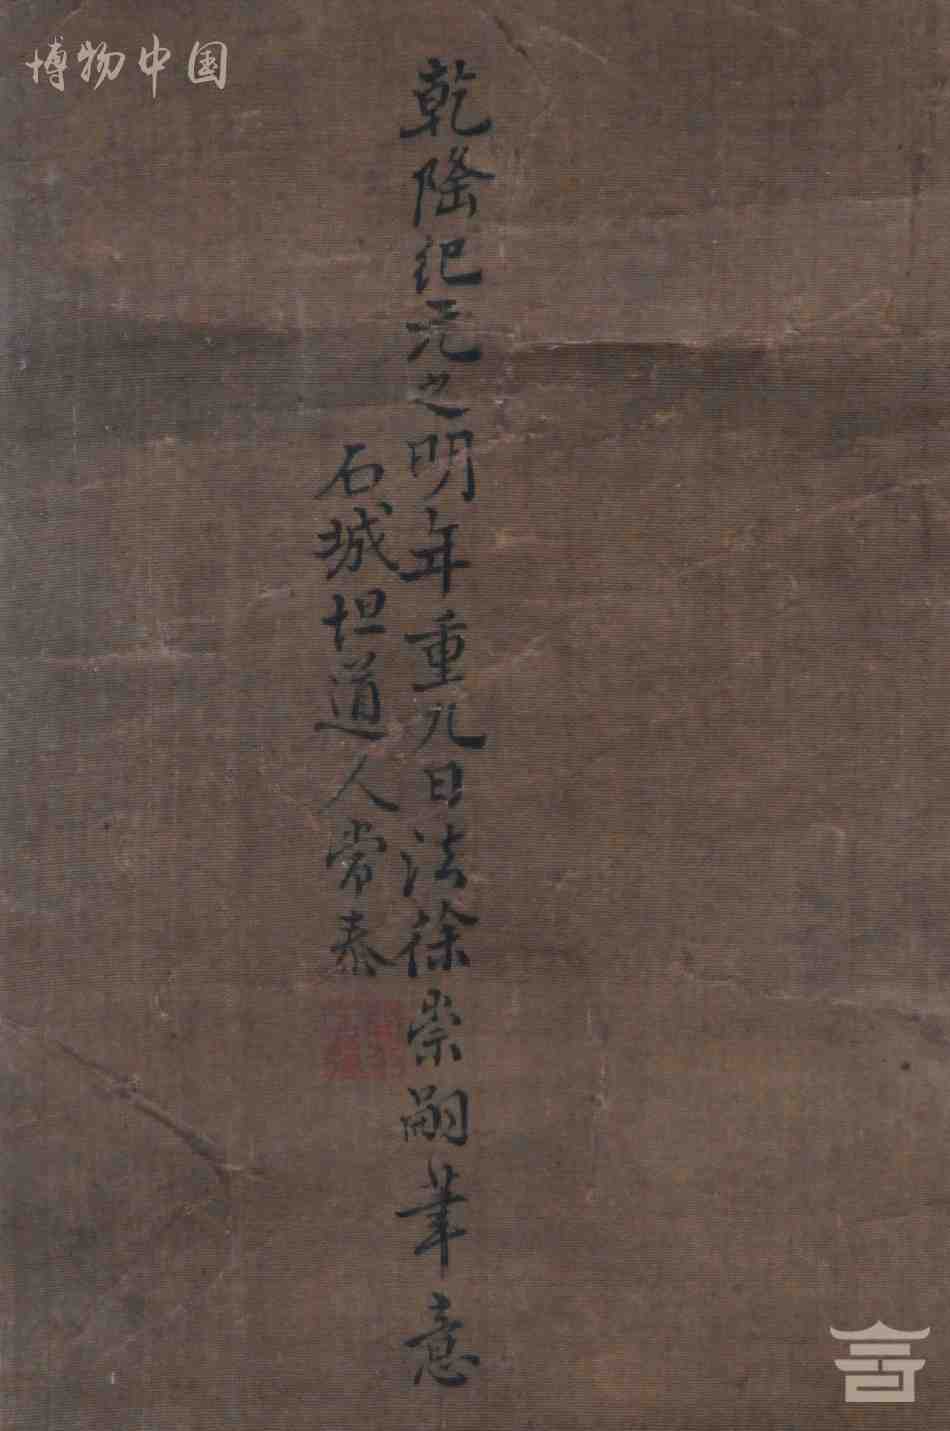 博物中国
乾隆纪元之明年重九日法徐崇嗣筆意
石城坦道人常泰